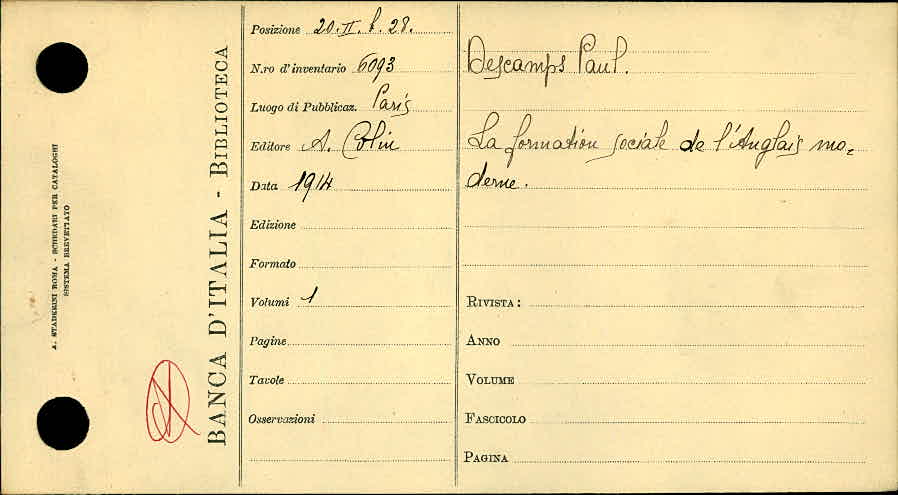 A. STADERINI ROMA - SCHEDARI PER CATALOGHI
SISTEMA BREVETTATO
BANCA D'ITALIA - BIBLIOTECA
Posizione 20.II.b.28.
N.ro d'inventario 6093
Luogo di Pubblicaz. Paris
Editore A. Colin
Data 1914
Edizione
Formato
Volumi 1
Pagine
Tavole
Osservazioni
Descamps Paul.
La formation sociale de l'Anglais mo=
derne.
RIVISTA:
ANNO
VOLUME
FASCICOLO
PAGINA